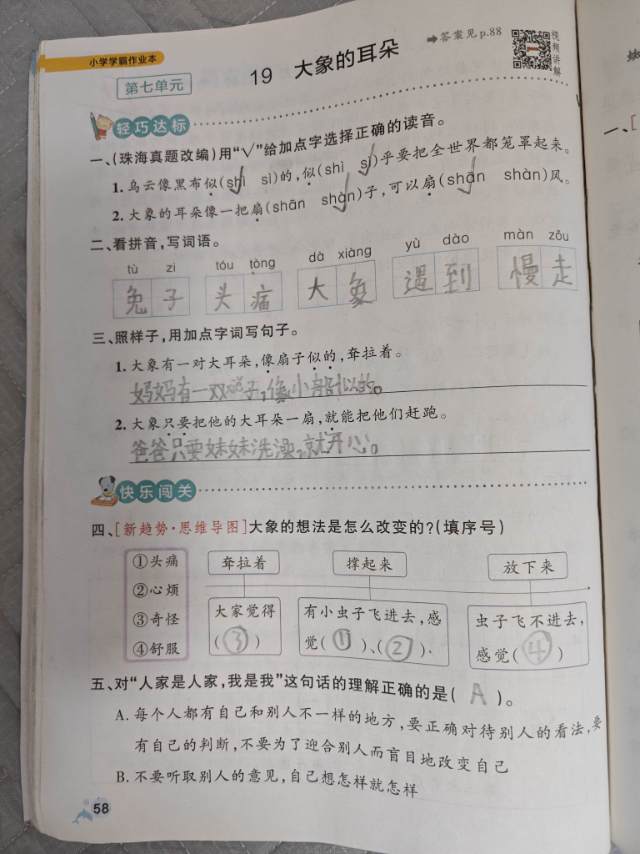 小学学霸作业本
第七单元
19 大象的耳朵
➡答案见p.88
视频讲解
轻巧达标
一、(珠海真题改编)用“√”给加点字选择正确的读音。
1. 乌云像黑布似(shì sì)的,似(shì sì)乎要把全世界都笼罩起来。
2. 大象的耳朵像一把扇(shān shàn)子,可以扇(shān shàn)风。
二、看拼音,写词语。
tù zi tóu tòng dà xiàng yù dào màn zǒu
兔子 头痛 大象 遇到 慢走
三、照样子,用加点字词写句子。
1. 大象有一对大耳朵,像扇子似的,耷拉着。
妈妈有一双 子,像小船似的。
2. 大象只要把他的大耳朵一扇,就能把他们赶跑。
爸爸只要妹妹洗澡,就开心。
快乐闯关
四、[新趋势·思维导图]大象的想法是怎么改变的?(填序号)
①头痛
②心烦
③奇怪
④舒服
耷拉着 撑起来 放下来
大家觉得(③)
有小虫子飞进去,感觉(①)、(②).
虫子飞不进去,感觉(④)
五、对“人家是人家,我是我”这句话的理解正确的是( A )。
A. 每个人都有自己和别人不一样的地方,要正确对待别人的看法,要
有自己的判断,不要为了迎合别人而盲目地改变自己
B. 不要听取别人的意见,自己想怎样就怎样
58
一、[